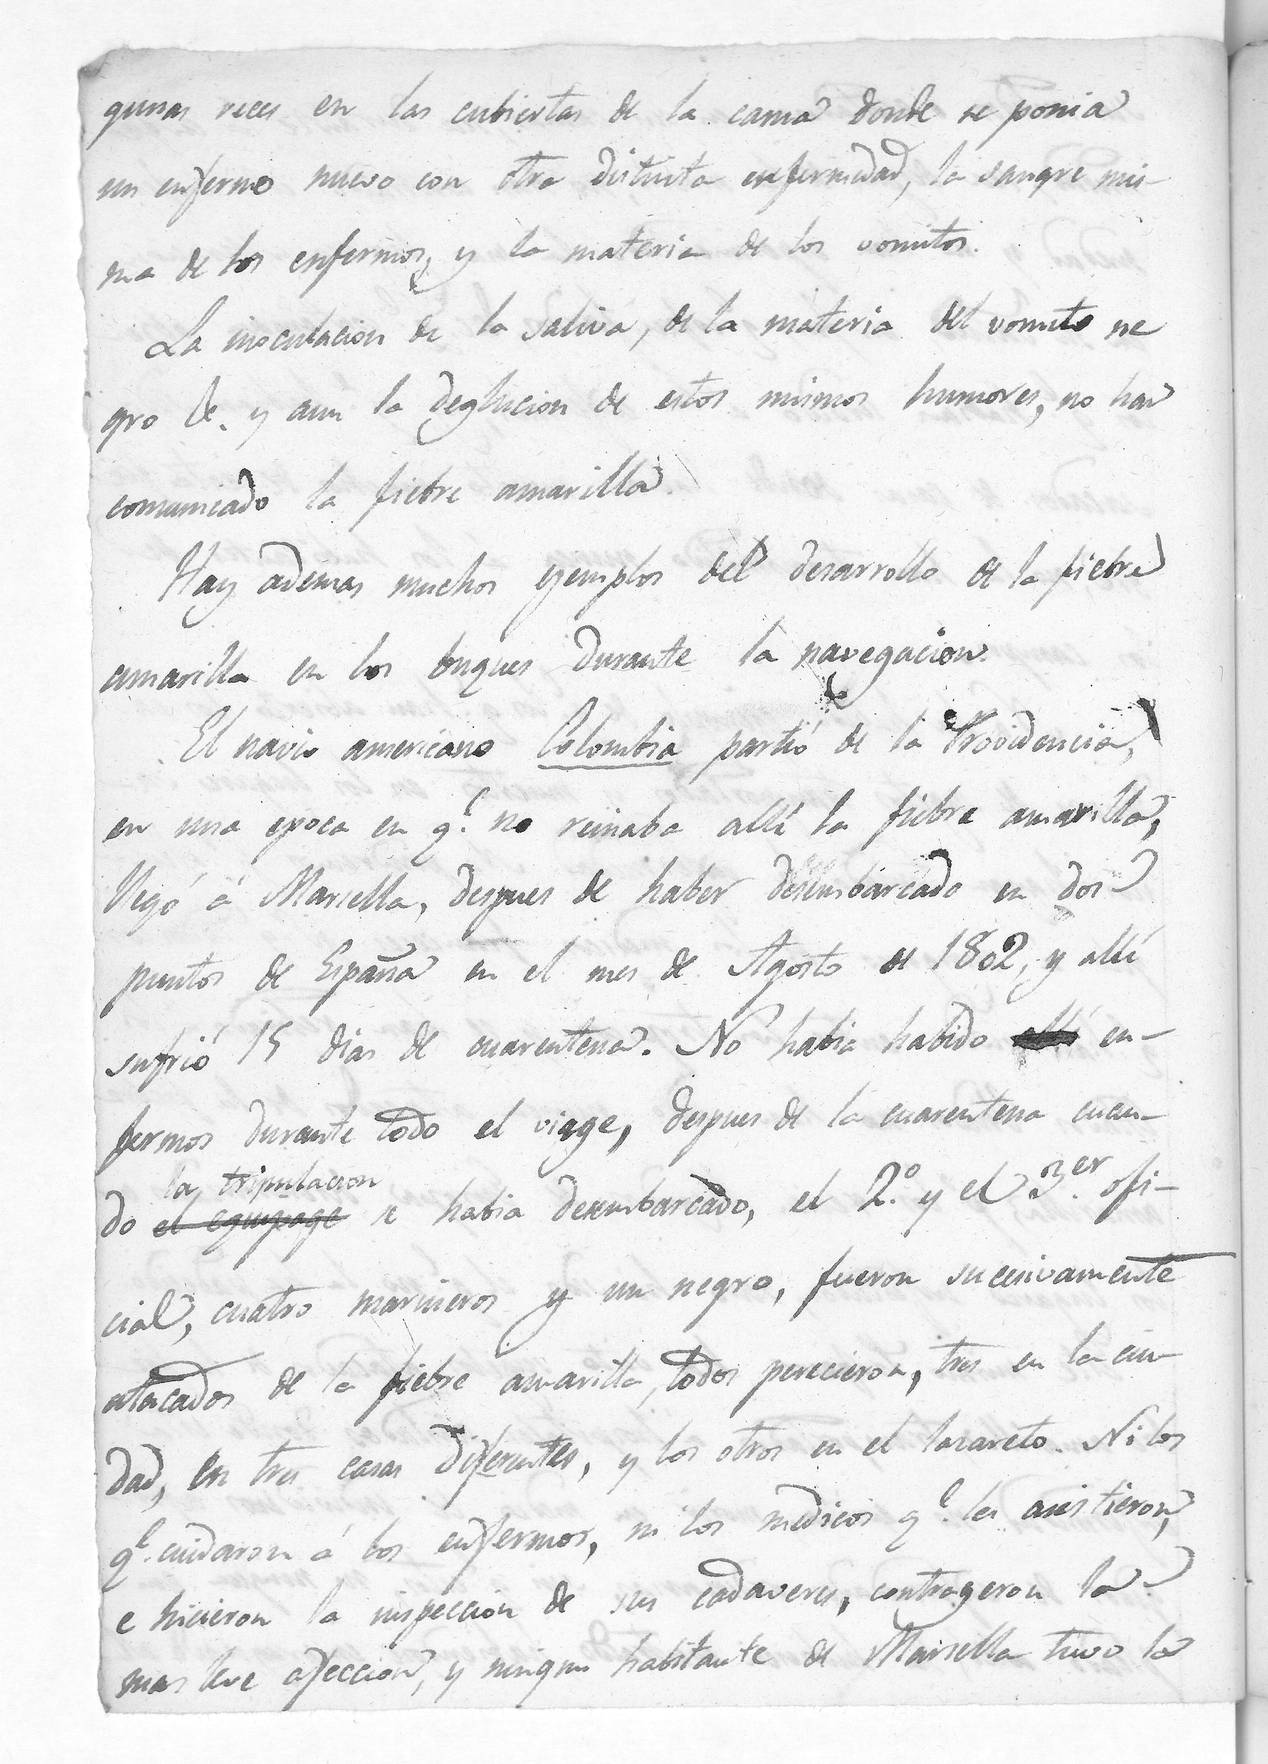 gunas veces en las cubiertas de la cama donde se ponia
un enfermo nuevo con otra distinta enfermedad, la sangre mis-
ma de los enfermos, y la materia de los vomitos.
La inoculacion de la saliva, de la materia del vomito ne
gro &c. y aun la deglucion de estos mismos humores, no han
comunicado la fiebre amarilla.
Hay ademas muchos ejemplos del desarrollo de la fiebre
amarilla en los buques durante la navegacion.
El navio americano Colombia partió de la Providencia,
en una epoca en q.e no reinaba allí la fiebre amarilla,
llegó á Marsella, despues de haber desembarcado en dos
puntos de España en el mes de Agosto de 1802, y allí
sufrió 15 dias de cuarentena. No habia habido allí en-
fermos durante todo el viage, despues de la cuarentena cuan-
la tripulacion
do el equipage se habia desembarcado, el 2.º y el 3.er ofi-
cial, cuatro marineros y un negro, fueron sucesivamente
atacados de la fiebre amarilla, todos perecieron, tres en la ciu
dad, en tres casas diferentes, y los otros en el lazareto. Ni los
q.e cuidaron á los enfermos, ni los medicos q.e les asistieron,
e hicieron la inspeccion de sus cadaveres, contrageron la
mas leve afeccion, y ningun habitante de Marsella tuvo la